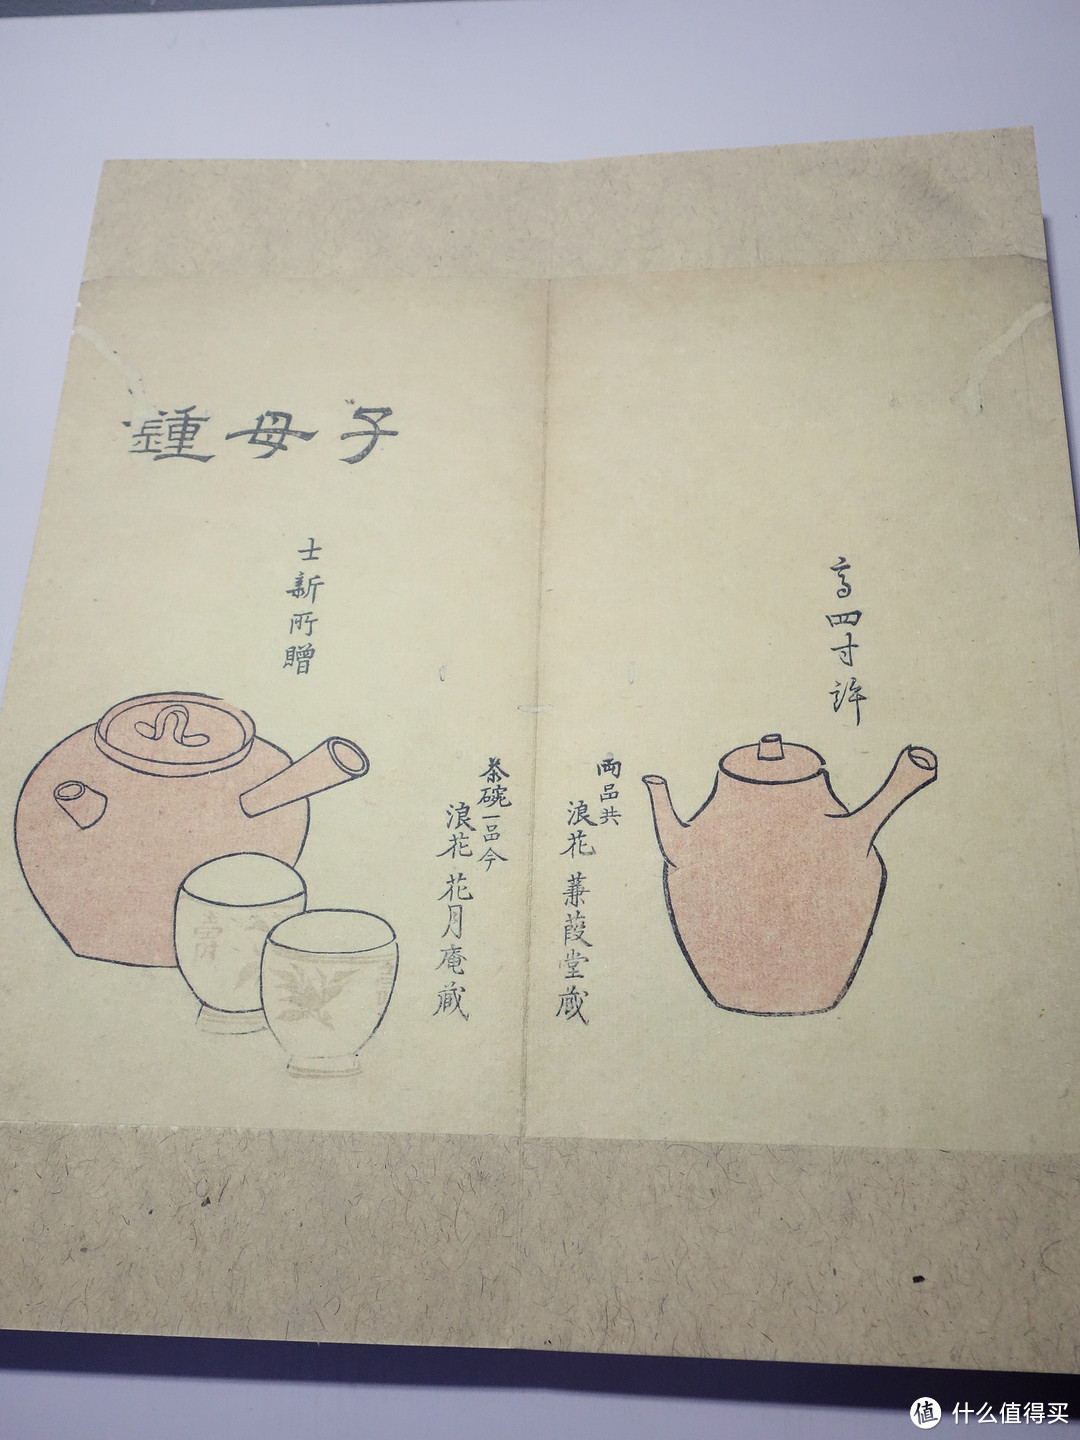 高四寸許
両品共
浪花 蒹葭堂蔵
子母鍾
士新所贈
茶碗一品今
浪花 花月庵蔵
值 什么值得买